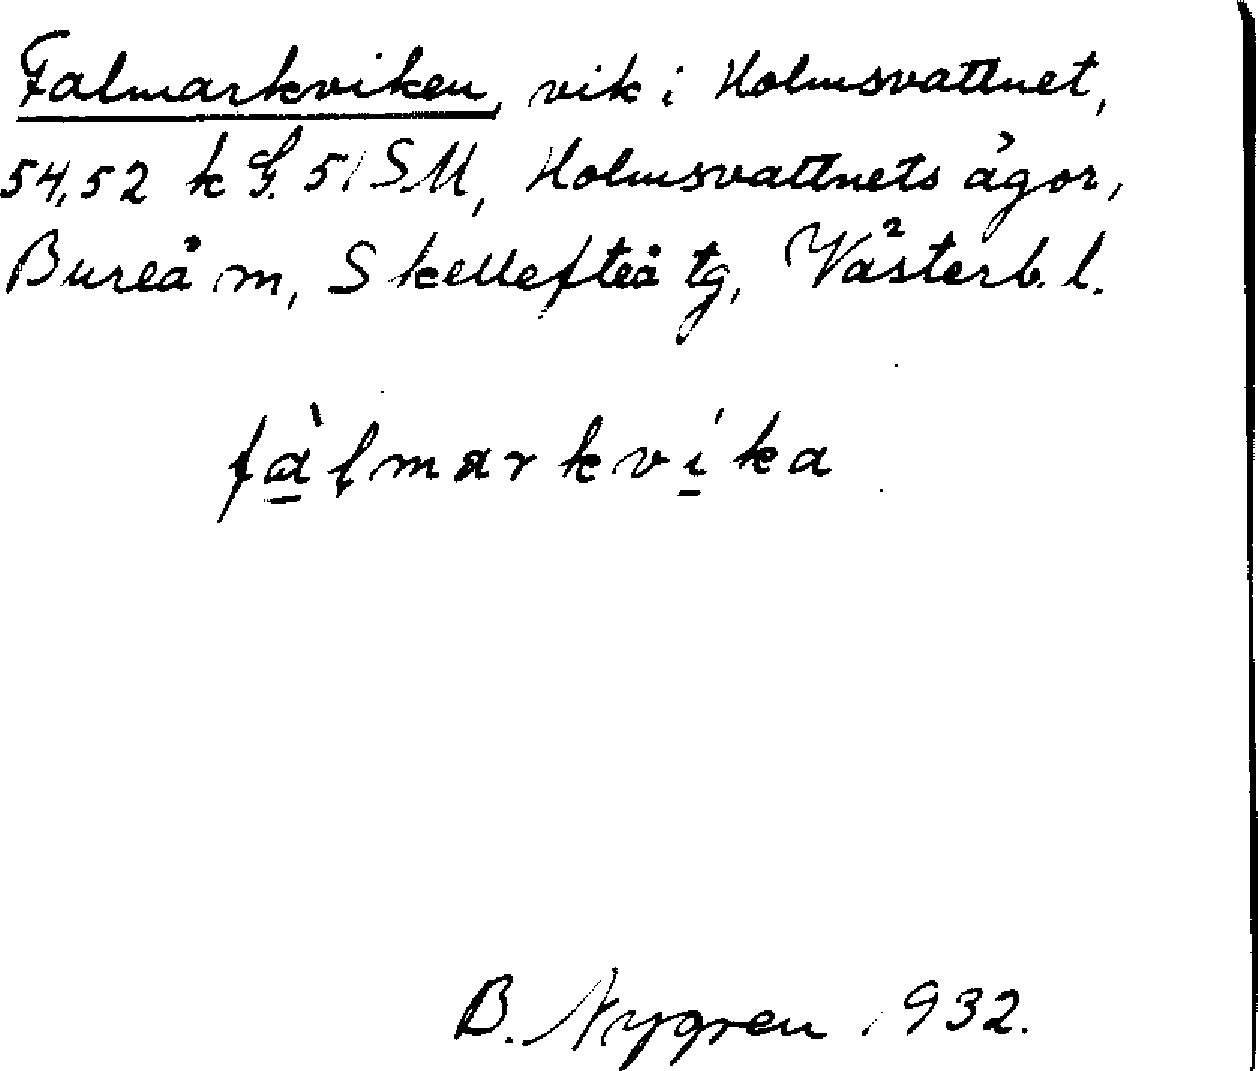 Falmarkviken, vik i Holmsvattnet,
54,52 k G. 51 SM, Holmsvattnets ägor,
Bureå m, Skellefteå tg, Västerb. l.
fàl̥markvíka
B. Nygren 1932.